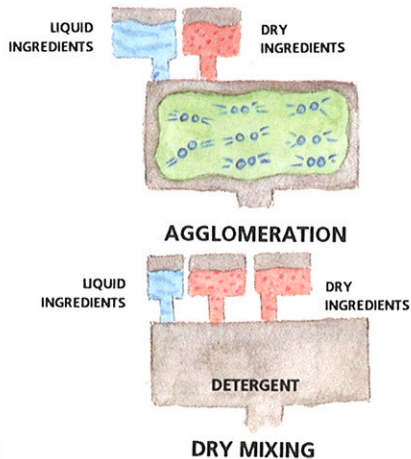 LIQUID
INGREDIENTS
DRY
INGREDIENTS
AGGLOMERATION
LIQUID
INGREDIENTS
DRY
INGREDIENTS
DETERGENT
DRY MIXING